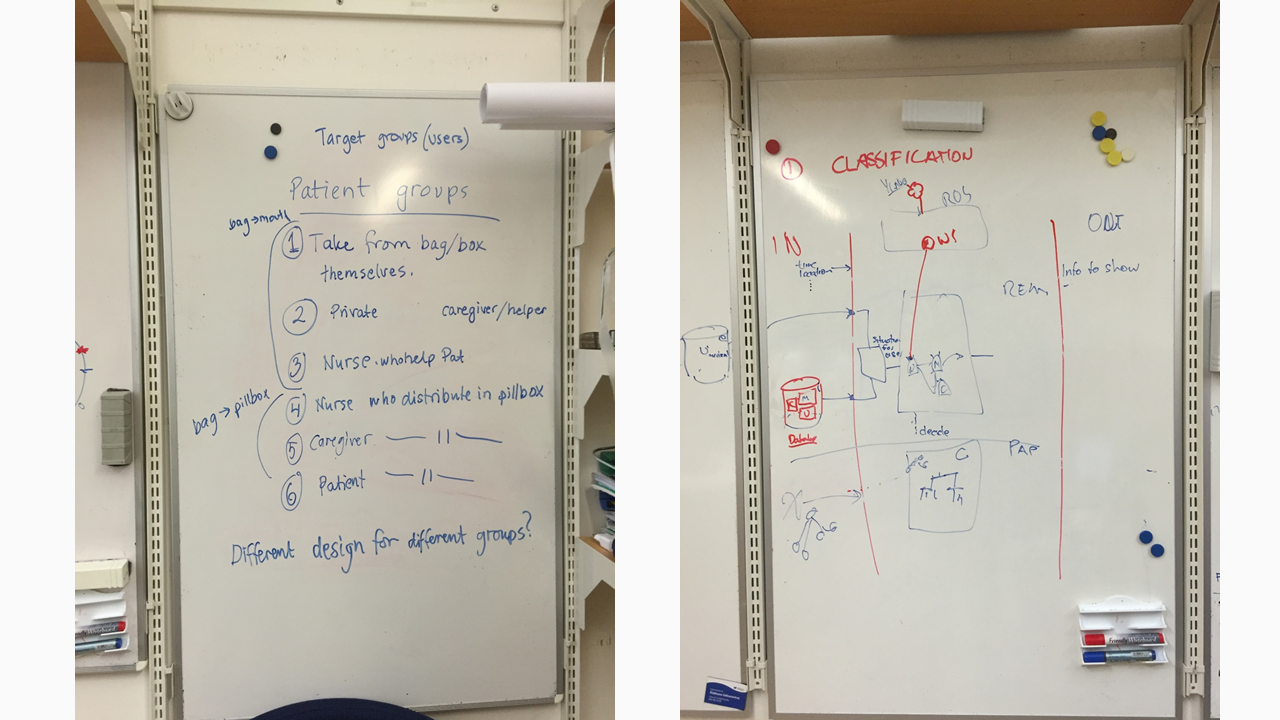 Target groups (users)
Patient groups
bag→mouth
1 Take from bag/box
themselves.
2 Private caregiver/helper
3 Nurse who help Pat
bag→pillbox
4 Nurse who distribute in pillbox
5 Caregiver — 11 —
6 Patient — 11 —
Different design for different groups?
1 CLASSIFICATION
ROS
IN
OUT
time
location
Info to show
REM
M
U
decide
PAP
C